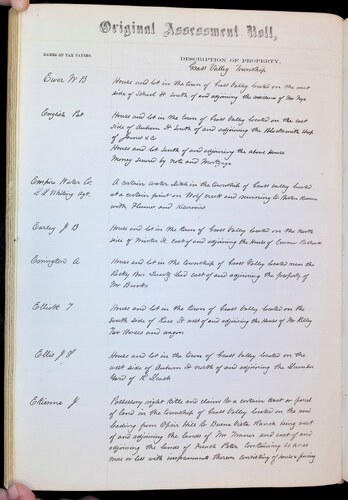 Original Assessment Roll,
NAMES OF TAX PAYERS.
DESCRIPTION OF PROPERTY.
Grass Valley Township
Ewer W B
House and lot in the town of Grass Valley located on the west
side of School St South of and adjoining the residence of Mr Nye
English Pat
House and lot in the town of Grass Valley located on the east
side of Auburn St South of and adjoining the Blacksmith Shop
of Jones & Co
House and lot South of and adjoining the above House
Money secured by note and Mortgage
Empire Water Co
Whiting Agt.
A certain water Ditch in the township of Grass Valley located
at a certain point on Wolf creek and running to Ravine
with Flumes and
Earley J B
House and lot in the town of Grass Valley located on the north
side of St east of and adjoining the House of
A
House and lot in the township of Grass Valley located near the
Rocky Bar Quartz Lead east of and adjoining the property of
Mr Brooks
Elliott T
House and lot in the town of Grass Valley located on the
South side of St west of and adjoining the House of Mr
Two Horses and wagon
Ellis J
House and lot in the town of Grass Valley located on the
west side of Auburn St north of and adjoining the Lumber
Yard of
Etienne J
Possessory right title and claim to a certain tract or parcel
of land in the township of Grass Valley located on the road
leading from Ophir Hill to Buena Vista Ranch being west
of and adjoining the lands of Mr and east of and
adjoining the lands of French Peter containing acres
more or less with improvements thereon consisting of house & fencing